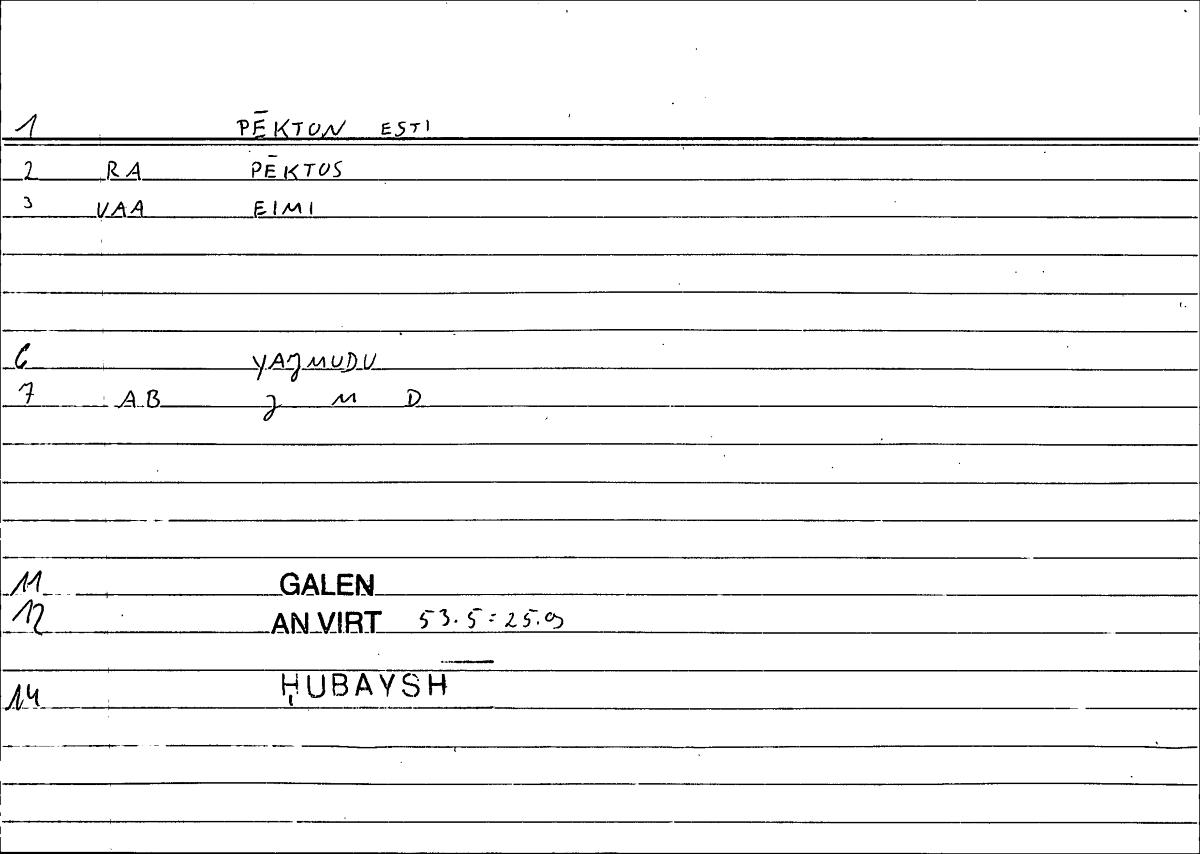 1 PĒKTON ESTI
2 RA PĒKTOS
3 VAA EIMI
6 YAJMUDU
7 AB J M D
11 GALEN
12 AN VIRT 53.5=25.9
14 ḤUBAYSH